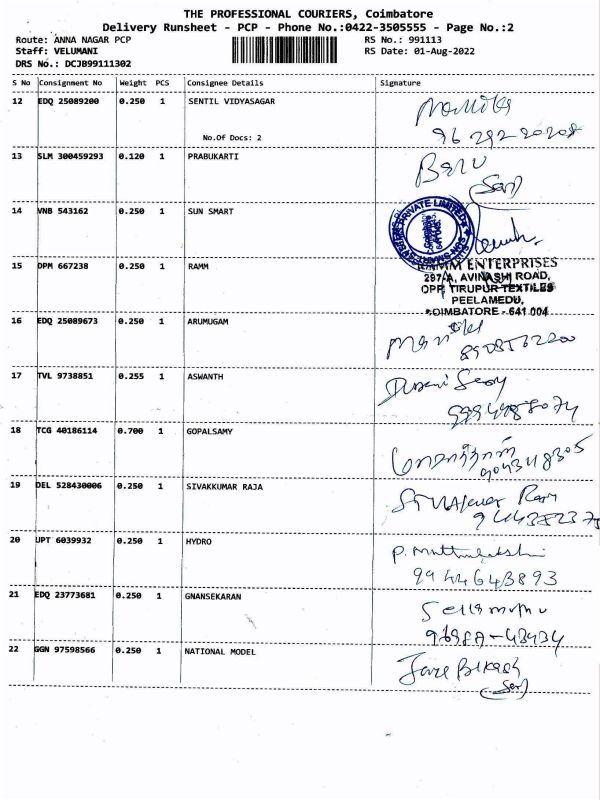 THE PROFESSIONAL COURIERS, Coimbatore
Delivery Runsheet - PCP - Phone No.:0422-3505555 - Page No.:2
Route: ANNA NAGAR PCP RS No.: 991113
Staff: VELUMANI RS Date: 01-Aug-2022
DRS No.: DCJB99111302
S No Consignment No Weight PCS Consignee Details Signature
12 EDQ 25089200 0.250 1 SENTIL VIDYASAGAR
No.Of Docs: 2
13 SLM 300459293 0.120 1 PRABUKARTI
14 VNB 543162 0.250 1 SUN SMART
PRIVATE LIMITED
15 DPM 667238 0.250 1 RAMM
ENTERPRISES
297-A, AVINASHI ROAD,
OPP. TIRUPUR TEXTILES
PEELAMEDU,
COIMBATORE - 641 004
16 EDQ 25089673 0.250 1 ARUMUGAM
17 TVL 9738851 0.255 1 ASWANTH
18 TCG 40186114 0.700 1 GOPALSAMY
19 DEL 528430006 0.250 1 SIVAKKUMAR RAJA
20 UPT 6039932 0.250 1 HYDRO P. Muthulakshmi
9944643893
21 EDQ 23773681 0.250 1 GNANSEKARAN
22 GGN 97598566 0.250 1 NATIONAL MODEL